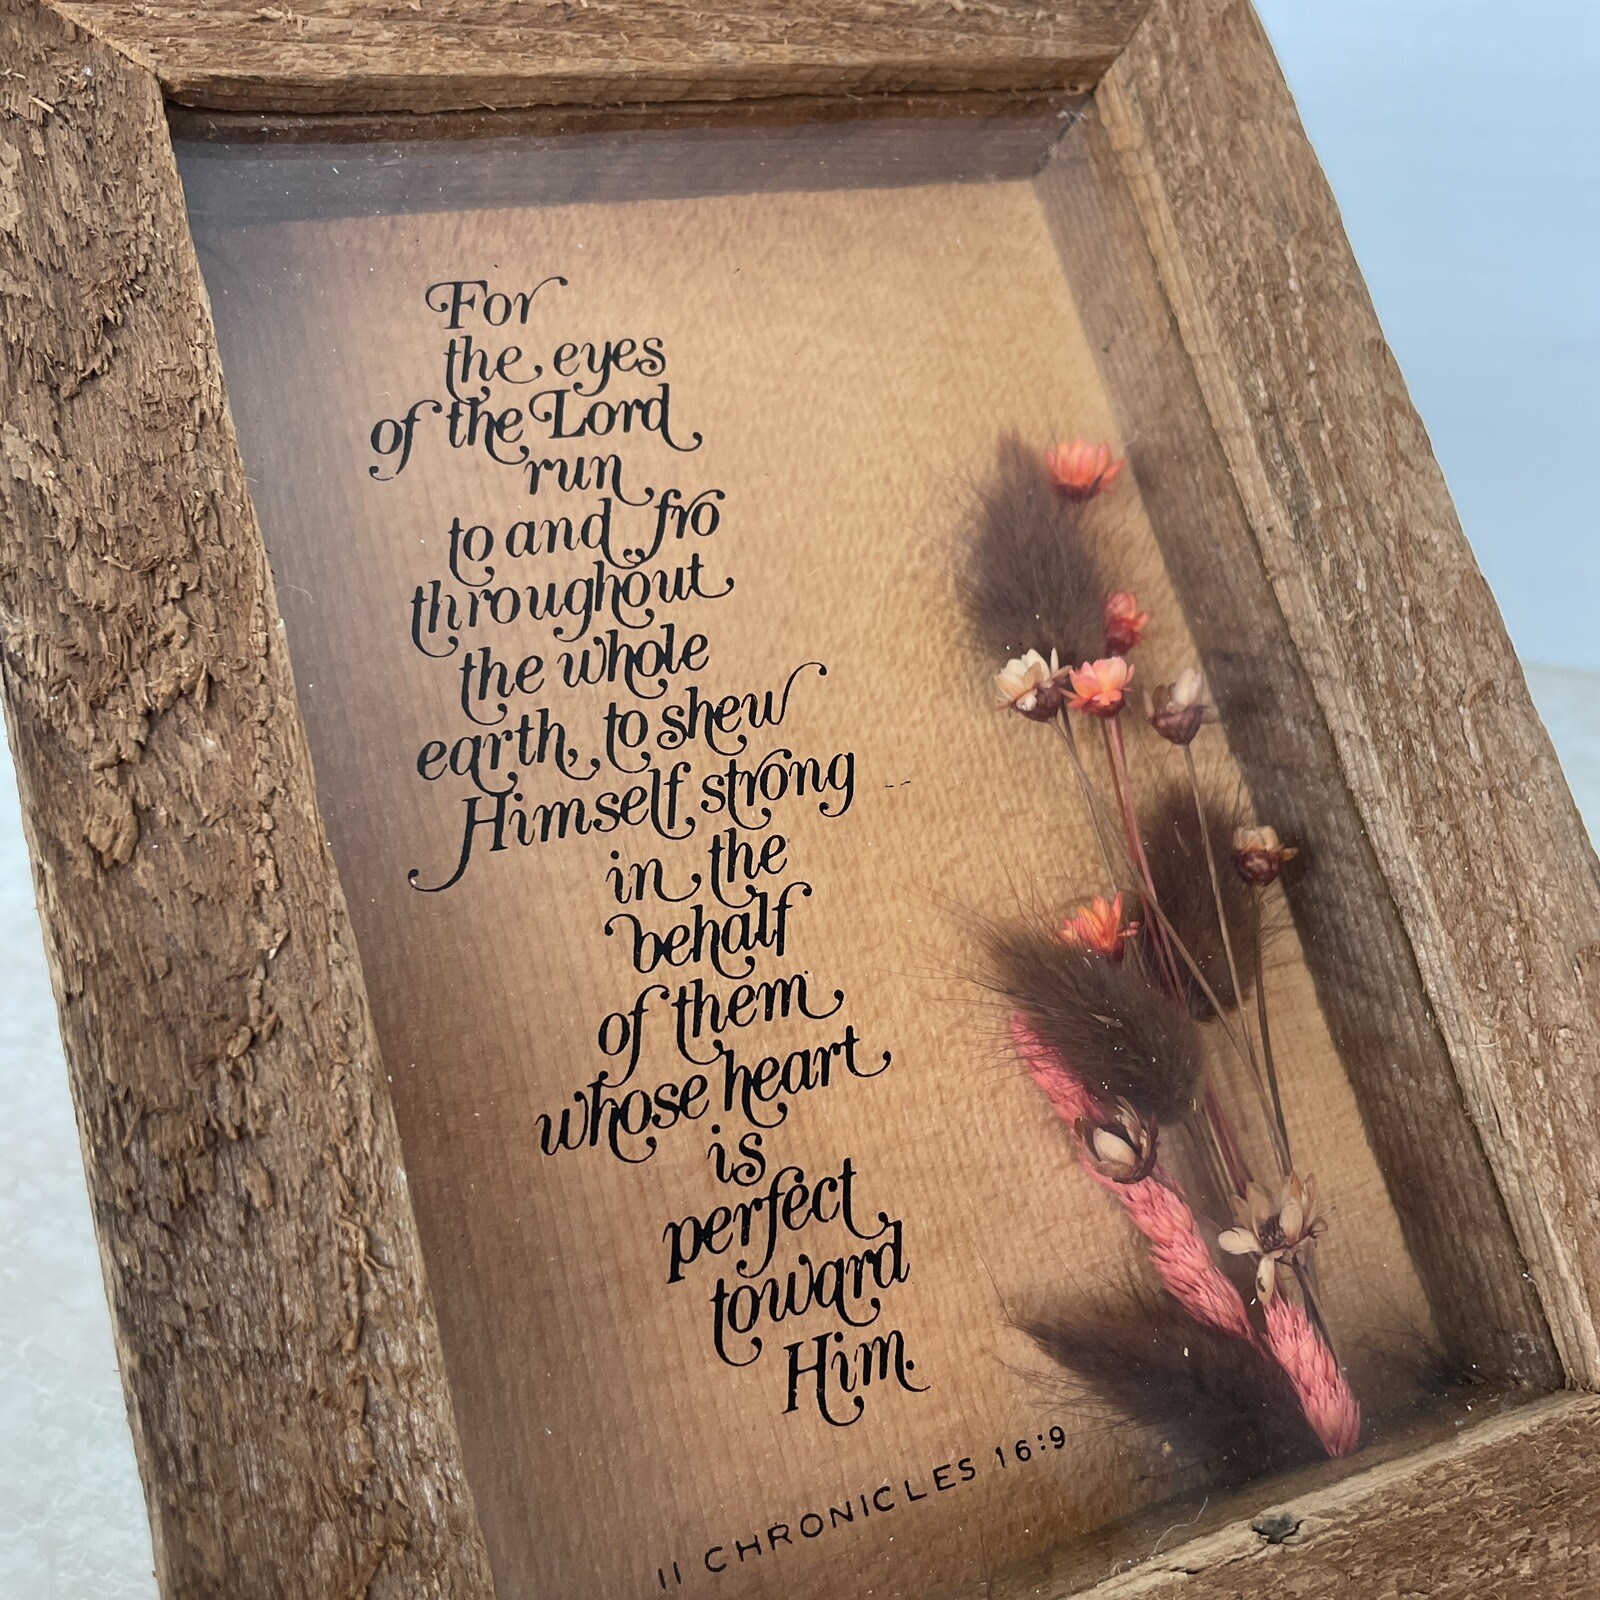 For
the eyes
of the Lord
run
to and fro
throughout
the whole
earth, to shew
Himself strong
in the
behalf
of them
whose heart
is
perfect
toward
Him.
II CHRONICLES 16:9